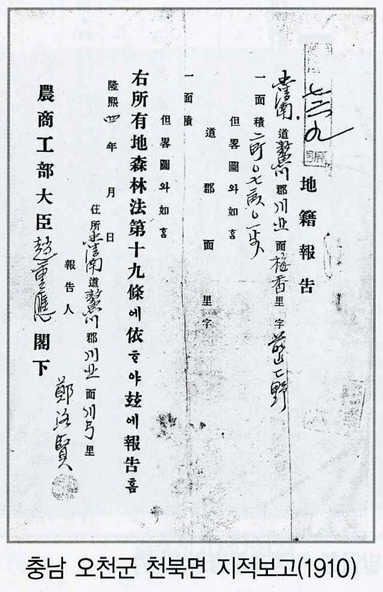 七三九
地籍報告
忠淸南道鰲川郡川北面 里字
一面積
但畧圖와如홈
道郡面里字
一面積
但畧圖와如홈
右所有地森林法第十九條에依ᄒᆞ야玆에報告홈
隆熙四年 月 日
住所忠淸南道鰲川郡川北面 里
報告人 鄭洛賢
農商工部大臣趙重應閣下
충남 오천군 천북면 지적보고(1910)